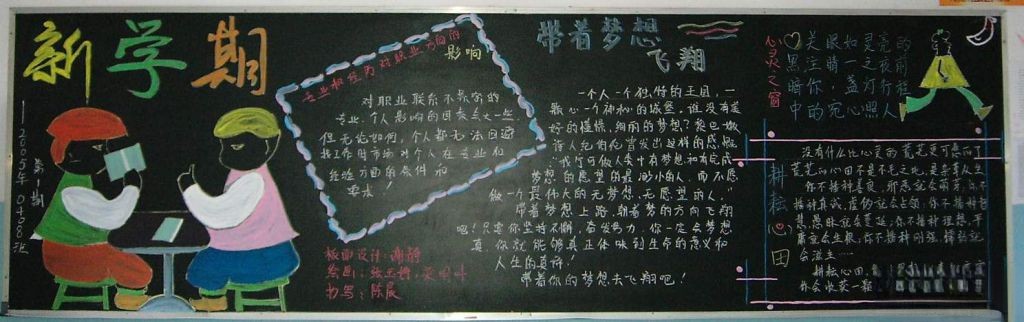 新学期
2005年 0408班
第1期
专业和经历对职业方面的
影响
对职业联系不紧密的
专业,个人影响的因素会大一些
但无论如何,个人都无法回避
经验方面的条件和
要求!
版面设计:谢静
书写:陈晨
带着梦想
飞翔
一个人一个独特的王国,一
颗心一个神秘的城堡,谁没有美
好的憧憬,绚丽的梦想?莫已
诗人纪伯伦曾发出这样的感慨
"我宁可做人类中有梦想和有完成
梦想的愿望的最渺小的人,而不愿
做一个最伟大的无梦想,无愿望的人。"
带着梦想上路,朝着梦的方向飞翔
吧!只要你坚持不懈,奋发努力,你一定会梦想
真,你就能够真正体味到生命的意义和
人生的真谛!
带着你的梦想去飞翔吧!
心灵之窗
美眼如灵亮的
黑注萌一之夜前
暗你,盏灯行程
中的宛心照人
耕耘心田
没有什么比心灵的荒芜更可怕的了
你不播种善良,邪恶就会萌芽,你不
播种真诚,虚伪就会占领,你不播种智
慧,愚昧就会蔓延,你不播种理想,平
庸就会生根,你不播种刚强,懦弱就
会滋生……
耕耘心田,
你会收获一颗